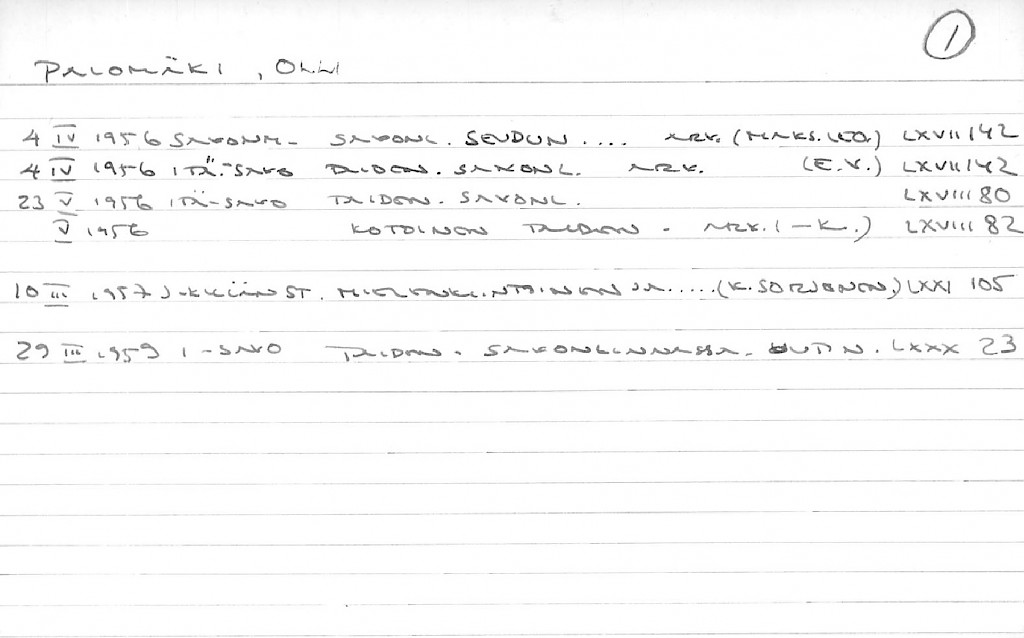 1
PALOMÄKI, OLLI
4 IV 1956 SAVONM- SAVONL. SEUDUN .... ARV. (MAKS. LEO.) LXVII 142
4 IV 1956 ITÄ-SAVO TAIDEN. SAVONL. ARV. (E.V.) LXVII 142
23 V 1956 ITÄ-SAVO TAIDEN. SAVONL. LXVIII 80
V 1956 KOTOINEN TAIDEN - ARV. (-K.) LXVIII 82
10 III 1957 MIELENKIINTOINEN JA ..... (K. SORJONEN) LXXI 105
29 III 1959 I-SAVO TAIDEN. SAVONLINNASSA. UUTIN. LXXX 23